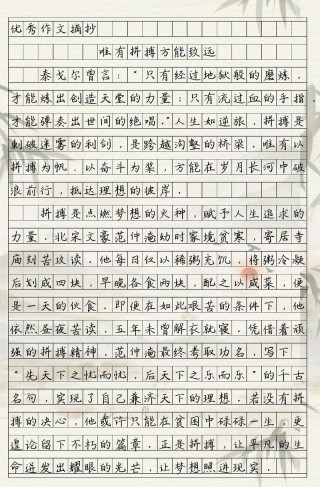 优秀作文摘抄
唯有拼搏方能致远
泰戈尔曾言："只有经过地狱般的磨炼，
才能炼出创造天堂的力量；只有流过血的手指，
才能弹奏出世间的绝唱。"人生如逆旅，拼搏是
刺破迷雾的利剑，是跨越沟壑的桥梁，唯有以
拼搏为帆，以奋斗为桨，方能在岁月长河中破
浪前行，抵达理想的彼岸。
拼搏是点燃梦想的火种，赋予人生追求的
力量。北宋文豪范仲淹幼时家境贫寒，寄居寺
庙刻苦攻读。他每日仅以稀粥充饥，将粥冷凝
后划成四块，早晚各食两块，配之以咸菜，便
是一天的伙食。即便在如此艰苦的条件下，他
依然昼夜苦读，五年未曾解衣就寝，凭借着顽
强的拼搏精神，范仲淹最终考取功名，写下
"先天下之忧而忧，后天下之乐而乐"的千古
名句，实现了自己兼济天下的理想。若没有拼
搏的决心，他或许只能在贫困中碌碌一生，更
遑论留下不朽的篇章。正是拼搏，让平凡的生
命迸发出耀眼的光芒，让梦想照进现实。